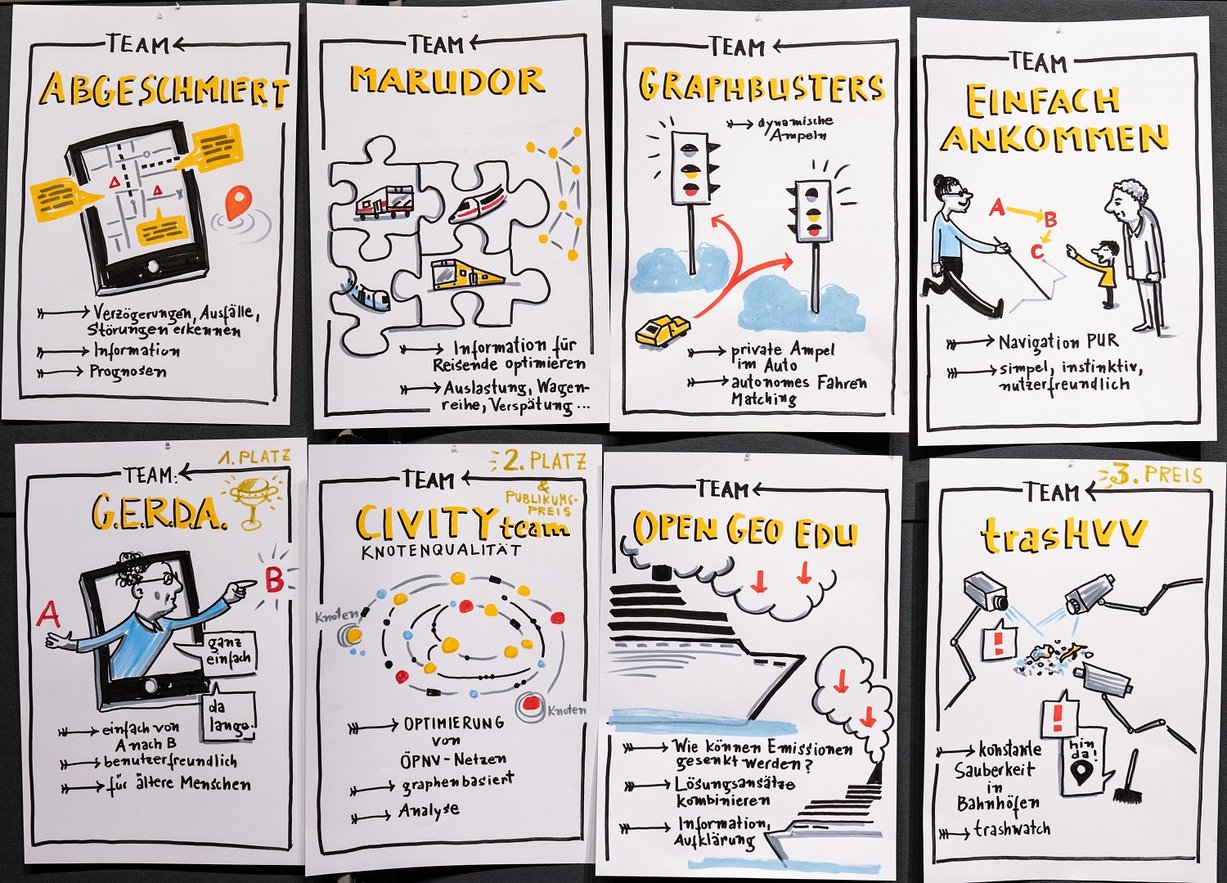 TEAM
ABGESCHMIERT
Verzögerungen, Ausfälle,
Störungen erkennen
Information
Prognosen
TEAM
MARUDOR
Information für
Reisende optimieren
Auslastung, Wagen-
reihe, Verspätung...
TEAM
GRAPHBUSTERS
dynamische
Ampeln
private Ampel
im Auto
autonomes Fahren
Matching
TEAM
EINFACH
ANKOMMEN
A
B
C
Navigation PUR
simpel, instinktiv,
nutzerfreundlich
1. PLATZ
TEAM:
G.E.R.D.A.
A
B
ganz
einfach
da
lang!
einfach von
A nach B
benutzerfreundlich
für ältere Menschen
2. PLATZ
&
PUBLIKUMS-
PREIS
TEAM
CIVITY team
KNOTENQUALITÄT
Knoten
Knoten
OPTIMIERUNG
von
ÖPNV-NETZEN
graphenbasiert
Analyse
TEAM
OPEN GEO EDU
Wie können Emissionen
gesenkt werden?
Lösungsansätze
kombinieren
Information,
Aufklärung
3. PREIS
TEAM
trasHVV
!
!
hin
da!
konstante
Sauberkeit
in
Bahnhöfen
trashwatch